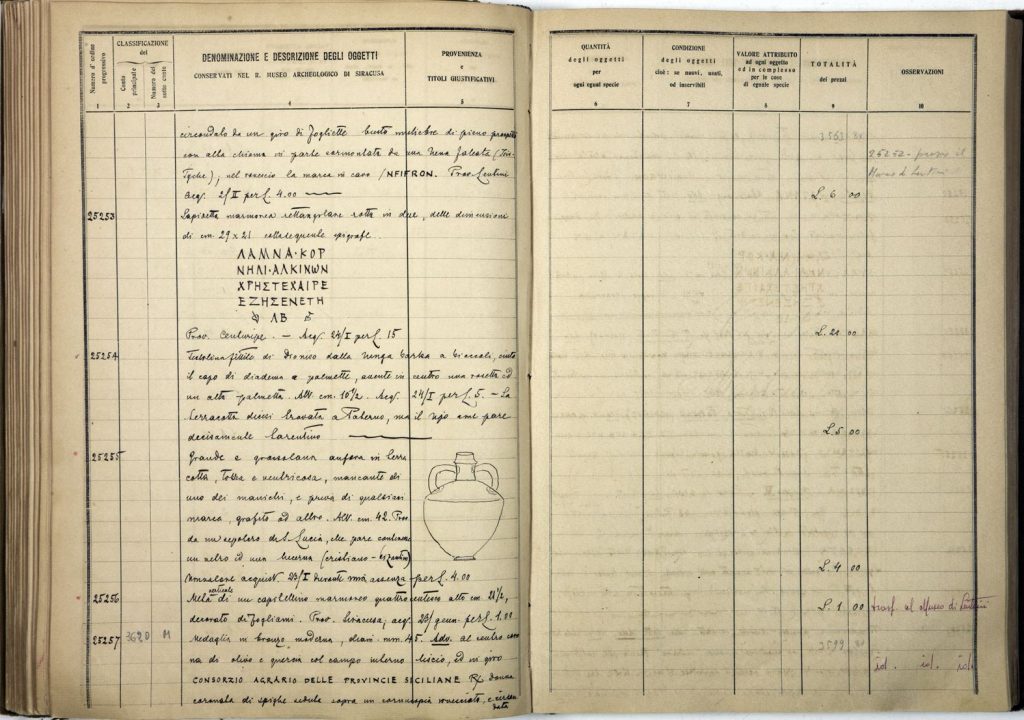 Numero d'ordine progressivo
CLASSIFICAZIONE
del
Conto principale
Numero del sotto conto
DENOMINAZIONE E DESCRIZIONE DEGLI OGGETTI
CONSERVATI NEL R. MUSEO ARCHEOLOGICO DI SIRACUSA
PROVENIENZA
e
TITOLI GIUSTIFICATIVI.
1
2
3
4
5
circondato da un giro di fogliette busto muliebre di pieno prospetto
con alta chioma in parte sormontata da una falcata
nel rovescio la marca in cavo /NFIFRON. Prov. Lentini
Acq. 2/II per L. 4.00
25253
Lapidetta marmorea rettangolare rotta in due, delle dimensioni
di cm. 29 x 21 colla seguente epigrafe
ΛΑΜΝΑ·ΚΟΡ
ΝΗΛΙ·ΑΛΚΙΝΩΝ
ΧΡΗΣΤΕΧΑΙΡΕ
ΕΖΗΣΕΝΕΤΗ
ΛΒ
Prov. Centuripe. — Acq. 24/I per L. 15
25254
di Dioniso dalla lunga barba a bioccoli, cinto
il capo di diadema a palmette, avente in centro una rosetta ed
un alta palmetta. Alt. cm. 10½. Acq. 24/I per L. 5. — La
terracotta dicesi trovata a Paternò, ma il tipo a me pare
decisamente tarentino
25255
Grande e grossolana anfora in terra
cotta, tozza e ventricosa, mancante di
uno dei manichi, e priva di qualsiasi
marca, grafito od altro. Alt. cm. 42. Prov.
da un sepolcro di S. Lucia, che pare contenesse
un vetro ed una lucerna (cristiano-bizantino)
acquist. 23/I durante mia assenza per L. 4.00
25256
Metà verticale di un capitellino marmoreo quattrocentesco alto cm. 28½,
decorato di fogliami. Prov. Siracusa; acq. 28 genn. per L. 1.00
25257 3620 M
Medaglia in bronzo moderna, diam. mm. 45. Adv. al centro coro
na di olivo e quercia col campo interno liscio, ed in giro
CONSORZIO AGRARIO DELLE PROVINCIE SICILIANE R/ donna
coronata di spighe seduta sopra un cornucopia rovesciato, e circon
data
QUANTITÀ
degli oggetti
per
ogni egual specie
CONDIZIONE
degli oggetti
cioè: se nuovi, usati,
od inservibili
VALORE ATTRIBUITO
ad ogni oggetto
ed in complesso
per le cose
di eguale specie
TOTALITÀ
dei prezzi
OSSERVAZIONI
6
7
8
9
10
3563
25252 - presso il
Museo di Lentini
L. 6 00
L. 21 00
L. 5 00
L. 4 00
L. 1 00
trasf. al Museo di Lentini
3599
id. id. id.